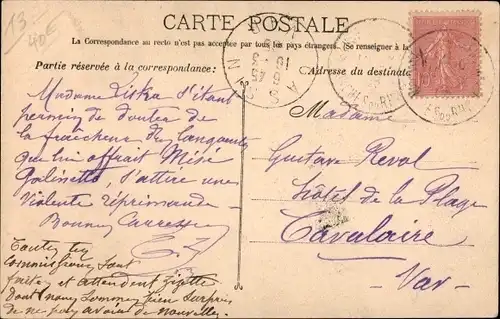 13
40€
CARTE POSTALE
La Correspondance au recto n'est pas acceptée par tous les pays étrangers. (Se renseigner à la
Partie réservée à la correspondance:
C Adresse du destinata
Madame Liska s'étant
permis de douter de
la fraîcheur des langoustes
que lui offrait Misé
Galinetto, s'attire une
violente réprimande
Bonnes Caresses
Toutes tes
commissions sont
faites et attendent
dont nous sommes bien surpris
de ne pas avoir de nouvelles.
Madame
Gustave Reval
Hôtel de la Plage
Cavalaire
Var